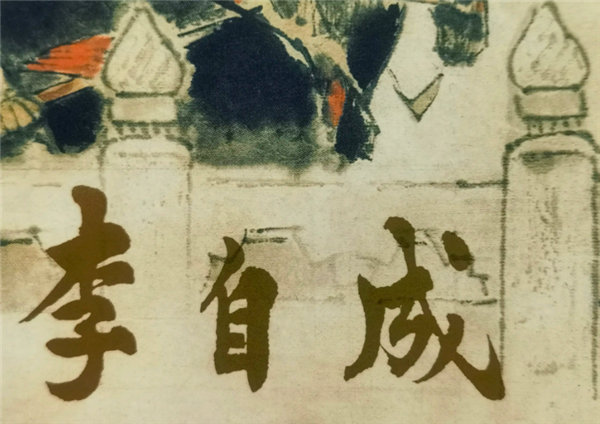 李自成